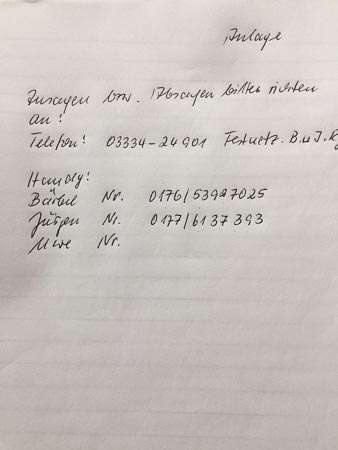 Anlage
Zusagen bzw. Absagen bitte richten
an:
Telefon: 03334-24901 Festnetz. B.u.J.
Handy:
Bärbel Nr. 0176/53927025
Jürgen Nr. 0177/6137393
Uwe Nr.